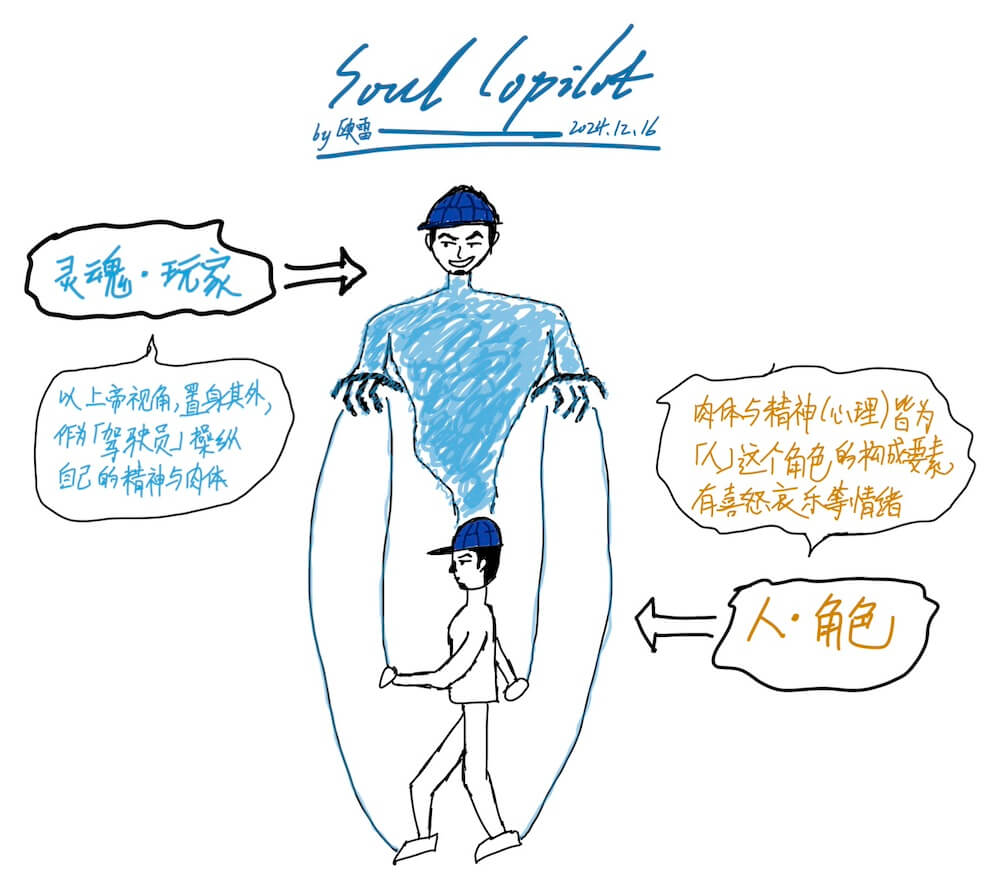 Soul Copilot
by 欧雷 2024.12.16
灵魂·玩家
以上帝视角,置身其外,
作为「驾驶员」操纵
自己的精神与肉体
肉体与精神(心理)皆为
「人」这个角色的构成要素,
有喜怒哀乐等情绪
人·角色